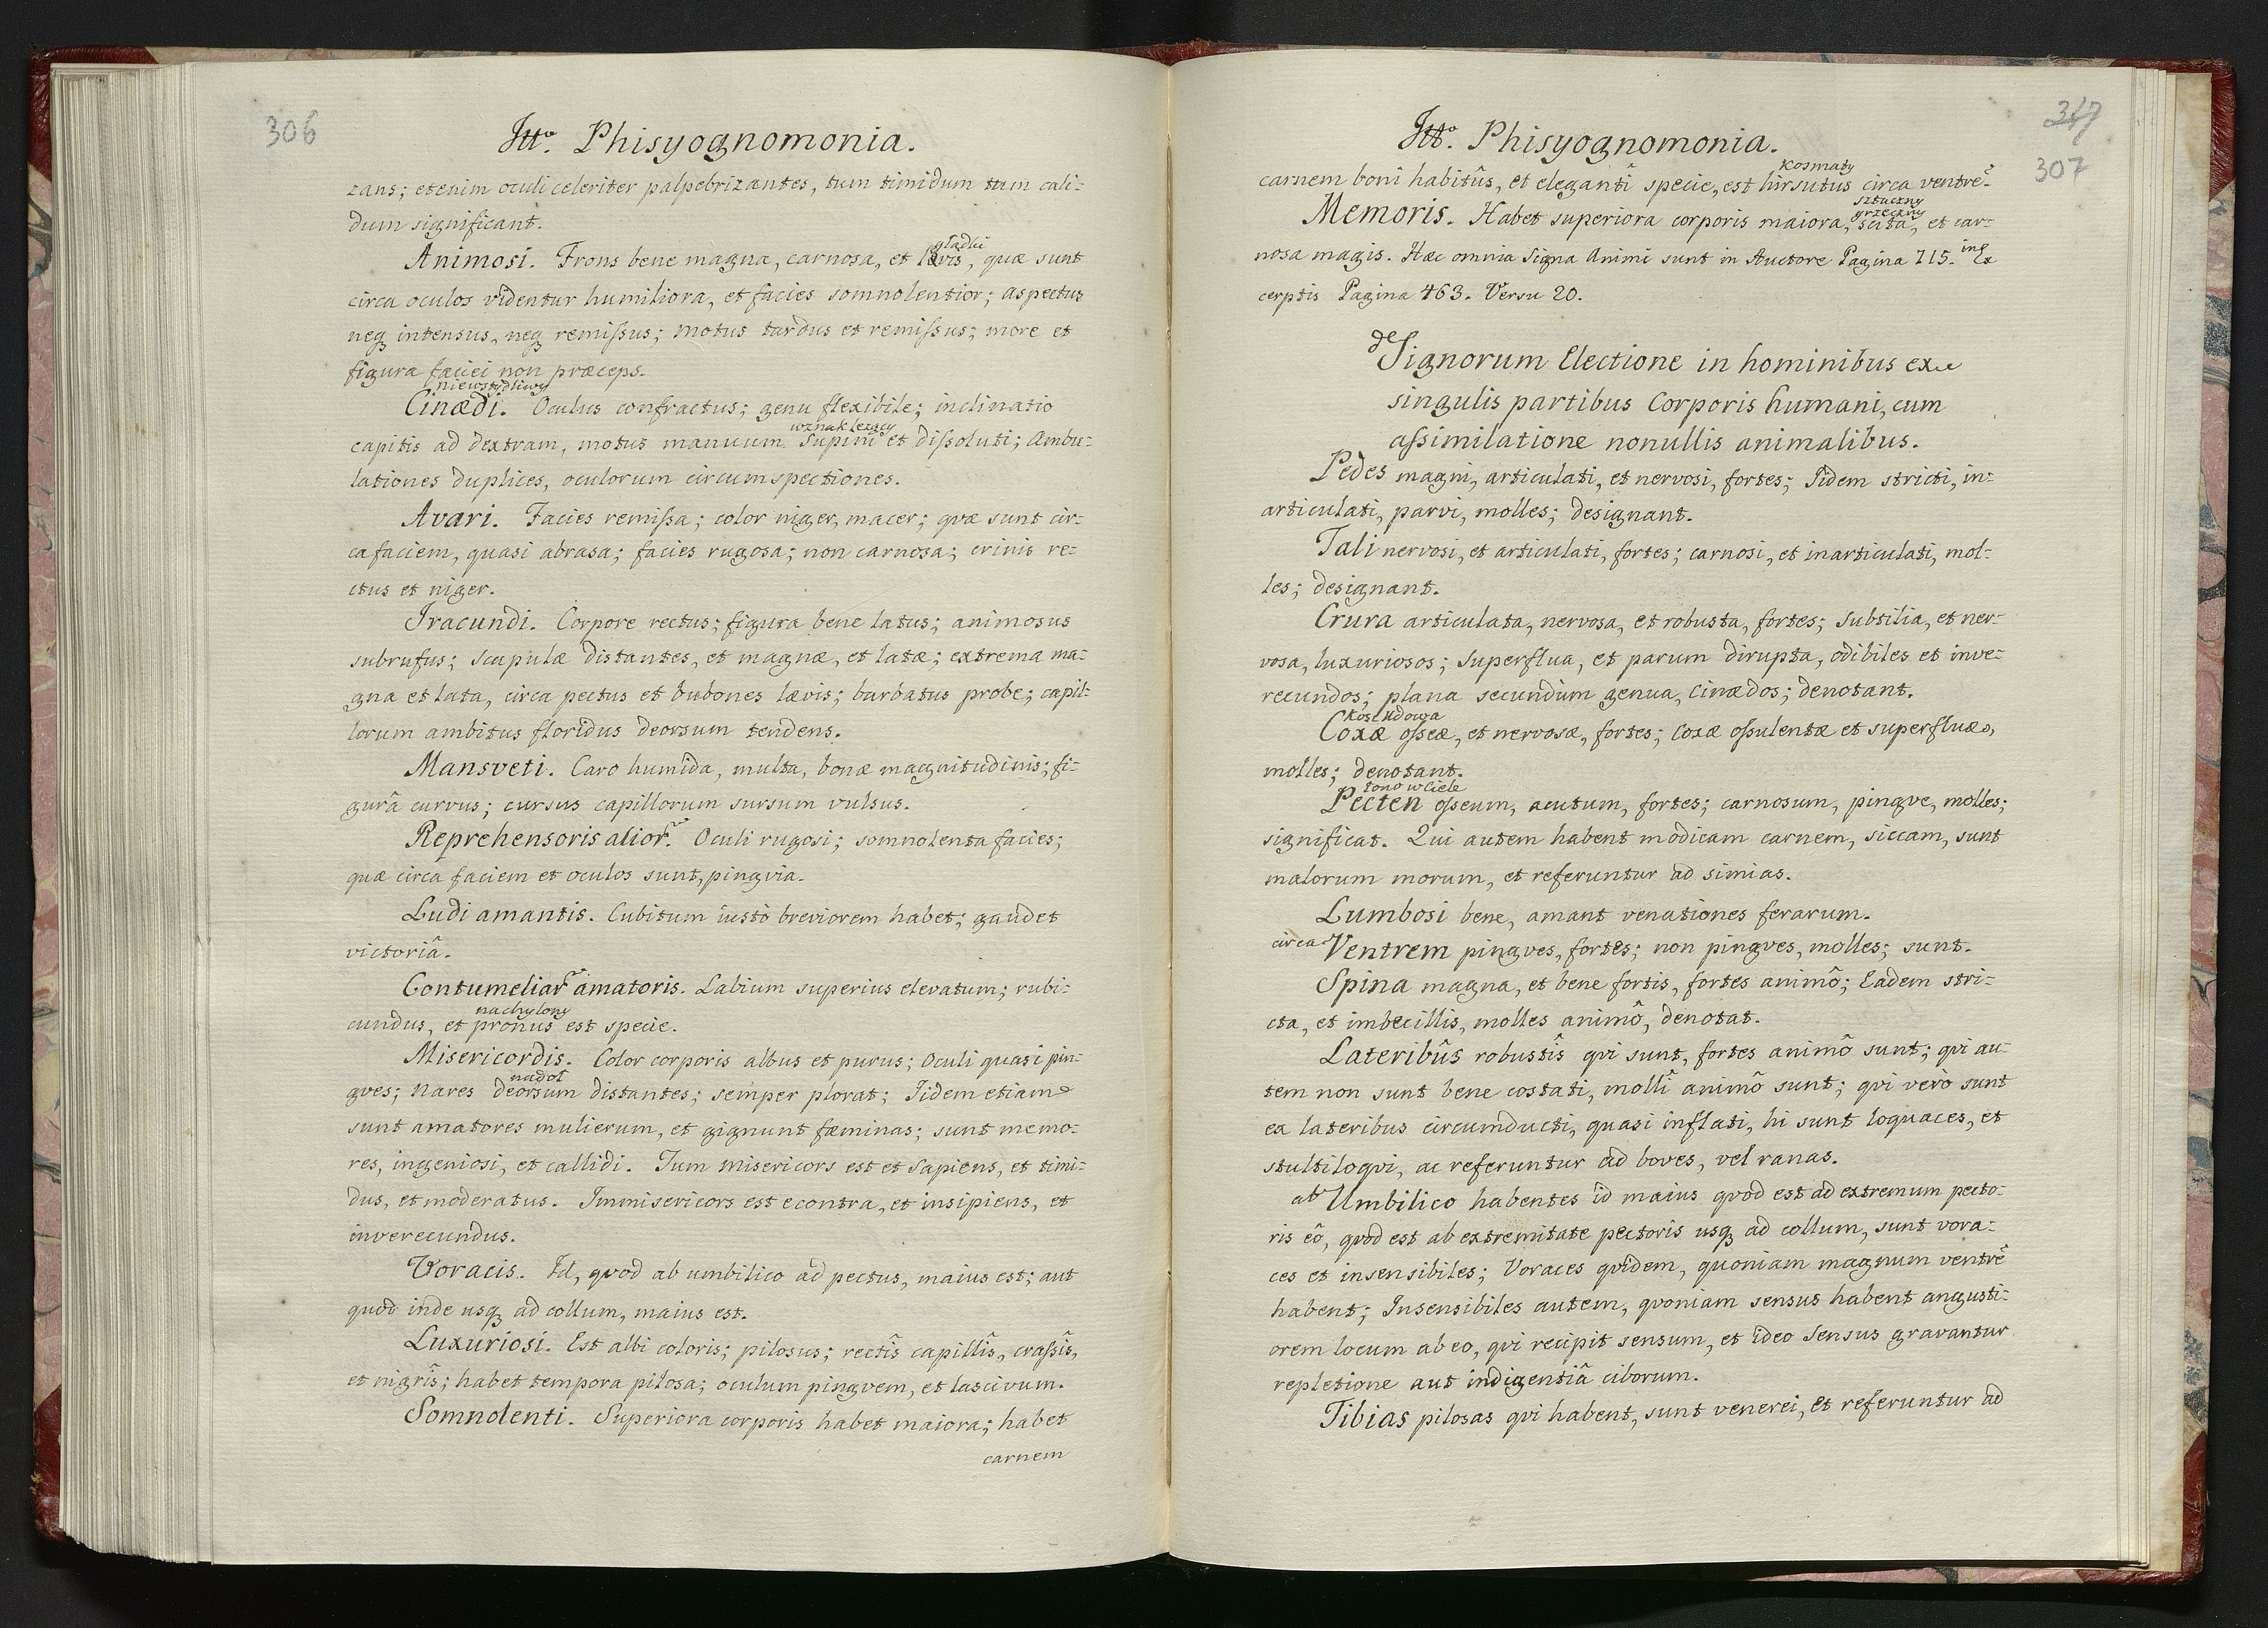 306
Itt.º Phisyognomonia.
zans; etenim oculi celeriter palpebrizantes, tum timidum tum cali-
dum significant.
gładki
Animosi. Frons bene magna, carnosa, et lævis, quæ sunt
circa oculos videntur humiliora, et facies somnolentior; aspectus
neq intensus, neq remissus; motus tardus et remissus; more et
figura faciei non præceps.
niewstydliwy
Cinædi. Oculus confractus; genu flexibile; inclinatio
wznak lezący
capitis ad dextram, motus manuum supini et dissoluti; Ambu-
lationes duplices, oculorum circumspectiones.
Avari. Facies remissa; color niger, macer; qvæ sunt cir-
ca faciem, quasi abrasa; facies rugosa; non carnosa; crinis re-
ctus et niger.
Iracundi. Corpore rectus; figura bene latus; animosus
subrufus; scapulæ distantes, et magnæ, et latæ; extrema ma-
gna et lata, circa pectus et bubones lævis; barbatus probe; capil-
lorum ambitus floridus deorsum tendens.
Mansveti. Caro humida, multa, bonæ magnitudinis; fi-
gurâ curvus; cursus capillorum sursum vulsus.
Reprehensoris alior. Oculi rugosi; somnolenta facies;
quæ circa faciem et oculos sunt, pingvia.
Ludi amantis. Cubitum iustò breviorem habet; gaudet
victoriâ.
Contumeliar amatoris. Labium superius elevatum; rubi-
nachylony
cundus, et pronus est specie.
Misericordis. Color corporis albus et purus; Oculi quasi pin-
nadoł
gves; Nares deorsum distantes; semper plorat; Iidem etiam
sunt amatores mulierum, et gignunt fæminas; sunt memo-
res, ingeniosi, et callidi. Tum misericors est et sapiens, et timi-
dus, et moderatus. Immisericors est econtra, et insipiens, et
inverecundus.
Voracis. Id, qvod ab umbilico ad pectus, maius est; aut
quod inde usq ad collum, maius est.
Luxuriosi. Est albi coloris; pilosus; rectîs capillîs, crassîs,
et nigrîs; habet tempora pilosa; oculum pingvem, et lascivum.
Somnolenti. Superiora corporis habet maiora; habet
carnem
307
Itt.º Phisyognomonia.
kosmaty
carnem boni habitûs, et elegantî specie, est hirsutus circa ventrē.
sztuczny
grzeczny
Memoris. Habet superiora corporis maiora, scita, et car-
nosa magis. Hæc omnia Signa Animi sunt in Auctore Pagina 715. in Ex
cerptis Pagina 463. Versu 20.
de Signorum Electione in hominibus ex
singulis partibus Corporis humani, cum
assimilatione nonullis animalibus.
Pedes magni, articulati, et nervosi, fortes; Iidem stricti, in-
articulati, parvi, molles; designant.
Tali nervosi, et articulati, fortes; carnosi, et inarticulati, mol-
les; designant.
Crura articulata, nervosa, et robusta, fortes; Subtilia, et ner-
vosa, luxuriosos; Superflua, et parum dirupta, odibiles et inve-
recundos; plana secundùm genua, Cinædos; denotant.
Coxæ osseæ, et nervosæ, fortes; Coxæ ossulentæ et superfluæ,
molles; denotant.
łono w Ciele
Pecten osseum, acutum, fortes; carnosum, pingve, molles;
significat. Qui autem habent modicam carnem, siccam, sunt
malorum morum, et referuntur ad simias.
Lumbosi bene, amant venationes ferarum.
circa Ventrem pingves, fortes; non pingves, molles; sunt.
Spina magna, et bene fortis, fortes animô; Eadem stri-
cta, et imbecillis, molles animô, denotat.
Lateribûs robustîs qvi sunt, fortes animô sunt; qvi au-
tem non sunt bene costati, mollî animô sunt; qvi verò sunt
ex lateribus circumducti, quasi inflati, hi sunt loquaces, et
stultiloqvi, ac referuntur ad boves, vel ranas.
ab Umbilico habentes id maius qvod est ad extremum pecto-
ris eô, qvod est ab extremitate pectoris usq ad collum, sunt vora-
ces et insensibiles; Voraces qvidem, quoniam magnum ventrē
habent; Insensibiles autem, qvoniam sensus habent angusti-
orem locum ab eo, qvi recipit sensum, et ideo Sensus gravantur
repletione aut indigentiâ ciborum.
Tibias pilosas qvi habent, sunt venerei, et referuntur ad